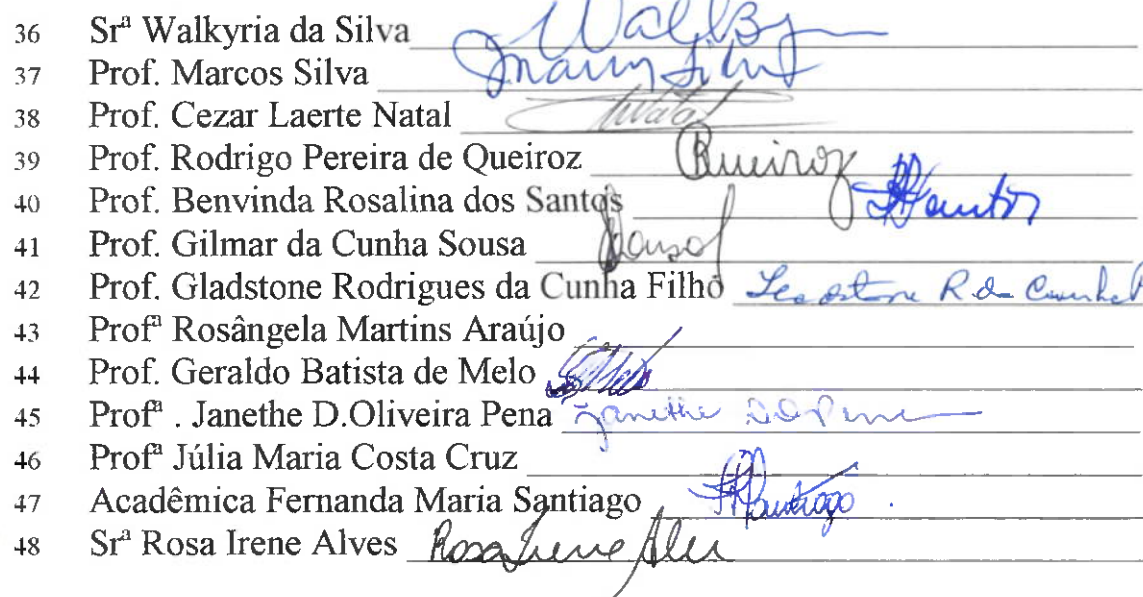 36 Srª Walkyria da Silva Walky
37 Prof. Marcos Silva Marcos Silva
38 Prof. Cezar Laerte Natal Natal
39 Prof. Rodrigo Pereira de Queiroz Queiroz
40 Prof. Benvinda Rosalina dos Santos Santos
41 Prof. Gilmar da Cunha Sousa Sousa
42 Prof. Gladstone Rodrigues da Cunha Filho Gladstone R da Cunha F
43 Profª Rosângela Martins Araújo
44 Prof. Geraldo Batista de Melo
45 Profª . Janethe D.Oliveira Pena Janethe D O Pena
46 Profª Júlia Maria Costa Cruz
47 Acadêmica Fernanda Maria Santiago Santiago
48 Srª Rosa Irene Alves Rosa Irene Alves